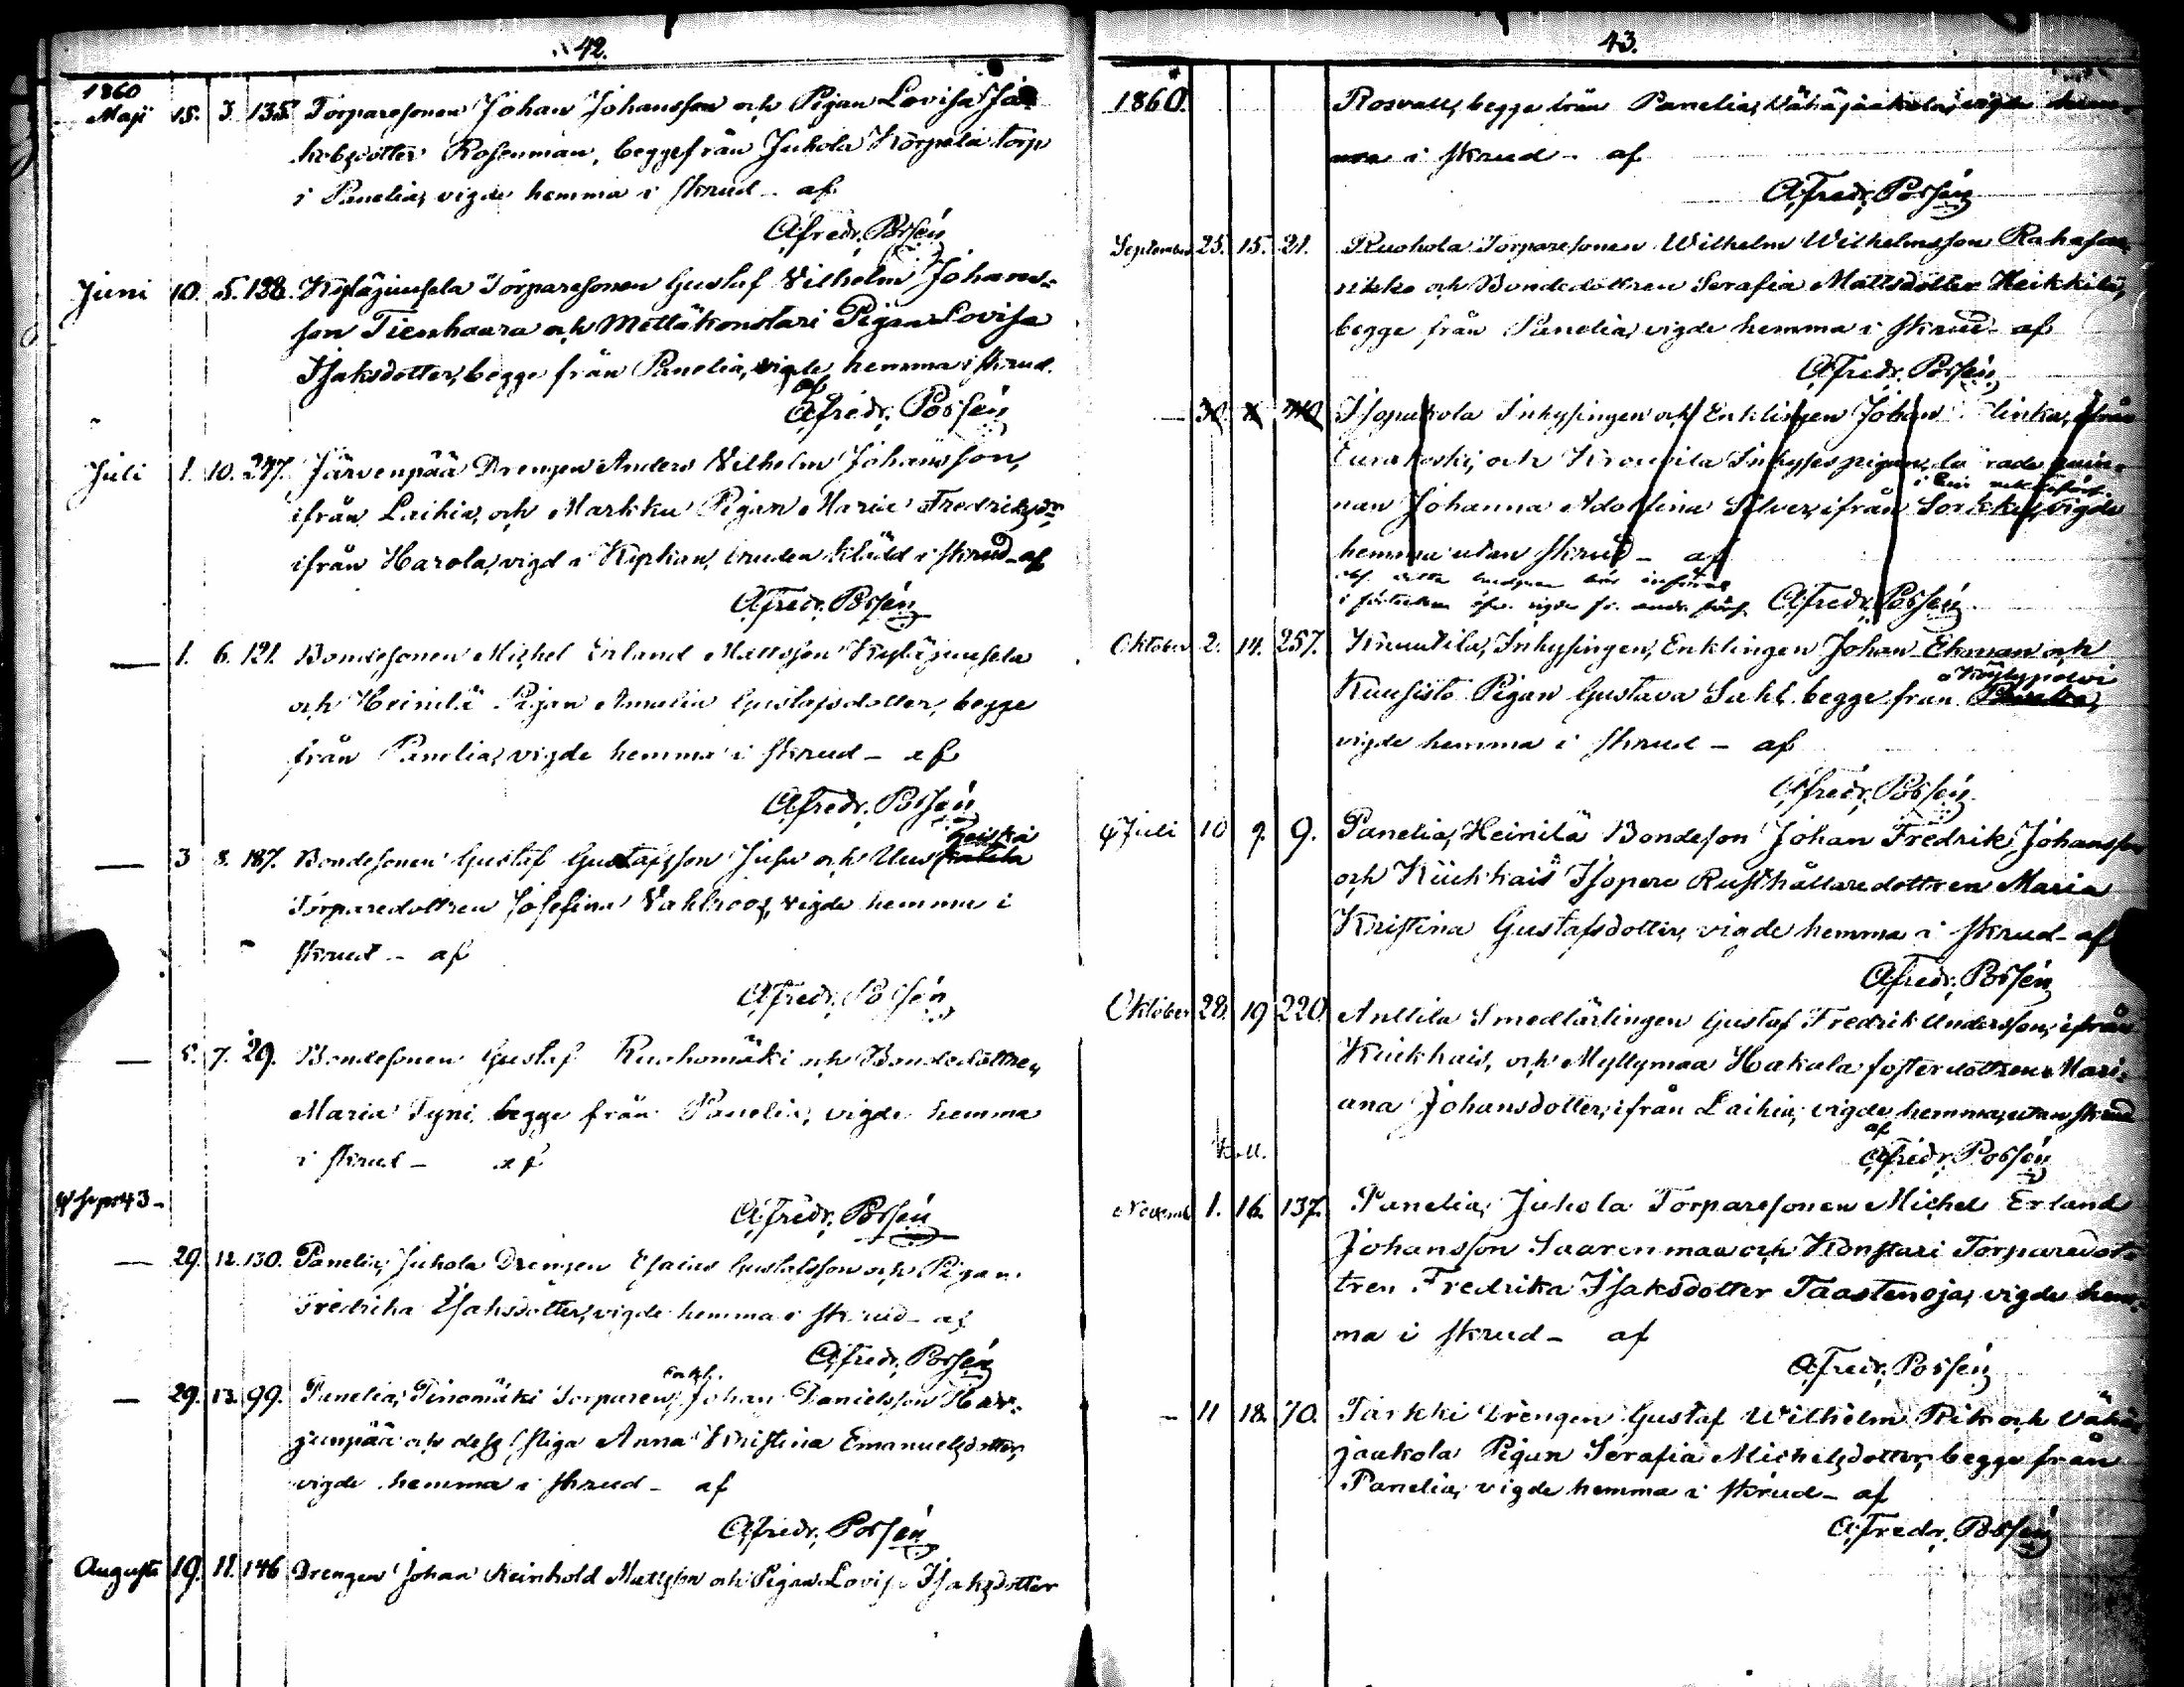 42.
1860
Maji 15. 3. 135. Torparesonen Johan Johansson och Pigan Lovisa Ja-
kobsdotter Rosenman, begge från Juhola Korpela torp
i Panelia, vigde hemma i skrud - af
A. Fredr. Possén
Juni 10. 5. 138. Kyläjunsela Torparesonen Gustaf Vilhelm Johans-
son Tienhaara och Mettäkonstari Pigan Lovisa
Isaksdotter, begge från Panelia, vigde hemma i skrud.
af
A. Fredr. Possén
Juli 1. 10. 247. Järvenpää Drengen Anders Vilhelm Johansson,
ifrån Laihia, och Markku Pigan Maria Fredriksdr
ifrån Harola, vigd i Kyrkan, bruden klädd i skrud - af
A. Fredr. Possén
— 1. 6. 121. Bondesonen Michel Erland Mattsson Kyläjunsela
och Heinilä Pigan Amalia Gustafsdotter, begge
från Panelia, vigde hemma i skrud - af
A. Fredr. Possén
— 3 8. 187. Bondesonen Gustaf Gustafsson Jusu och Uus
Torparedottren Josefina Vahlroos, vigde hemma i
skrud - af
A. Fredr. Possén
— 5. 7. 29. Bondesonen Gustaf Ruohomäki och Bondedottren
Maria Tyni, begge från Panelia, vigde hemma
i skrud - af
43 -
A. Fredr. Possén
— 29. 12. 130. Panelia, Juhola Drengen Esaias Gustafsson och Pigan
Fredrika Isaksdotter, vigde hemma i skrud - af
A. Fredr. Possén
enkl.
— 29. 13. 99. Panelia, Tinomäki Torparen, Johan Danielsson Har-
junpää och dess Piga Anna Kristina Emanuelsdotter,
vigde hemma i skrud - af
A. Fredr. Possén
Augusti 19. 11. 146 Drengen Johan Reinhold Mattsson och Pigan Lovisa Isaksdotter
43.
1860. Rosvall, begge från Panelia, Vähäjaakola, vigde hem-
ma i skrud - af
A. Fredr. Possén
September 25. 15. 21. Ruohola Torparesonen Wilhelm Wilhelmsson Rahason
rikko och Bondedottren Serafia Mattsdotter Heikkilä,
begge från Panelia, vigde hemma i skrud - af
A. Fredr. Possén
— 30. Isopukola Inhysingen och Enklingen Johan linka, ifrån
Eurakoski, och Krouvila Inhysespigan,
nan Johanna Adolfina Silver, ifrån Sorkkis, vigde
hemma utan skrud - af
A. Fredr. Possén
Oktober 2. 14. 257. Knuutila, Inhysingen, Enklingen Johan Ekman och
Köylypolvi
Kuusisto Pigan Gustava Sahl. begge från Panelia,
vigde hemma i skrud - af
A. Fredr. Possén
Juli 10 9. 9. Panelia, Heinilä Bondeson Johan Fredrik Johansson
och Kiukkais Isopere Rusthållaredottren Maria
Kristina Gustafsdotter, vigde hemma i skrud - af
A. Fredr. Possén
Oktober 28. 19 220. Anttila Smedlärlingen Gustaf Fredrik Andersson, ifrån
Kiukkais, och Myllymaa Hakala fosterdottren Mari-
ana Johansdotter, ifrån Laihia, vigde hemma, utan skrud
af
A. Fredr. Possén
Novemb. 1. 16. 137. Panelia, Juhola Torparesonen Michel Erland
Johansson Saarenmaa och Konstari Torparedot-
tren Fredrika Isaksdotter Taastenoja, vigde hem-
ma i skrud - af
A. Fredr. Possén
— 11 18. 70. Tarkki Drengen Gustaf Wilhelm Rik och Vähä
jaakola Pigan Serafia Michelsdotter, begge från
Panelia, vigde hemma i skrud - af
A. Fredr. Possén